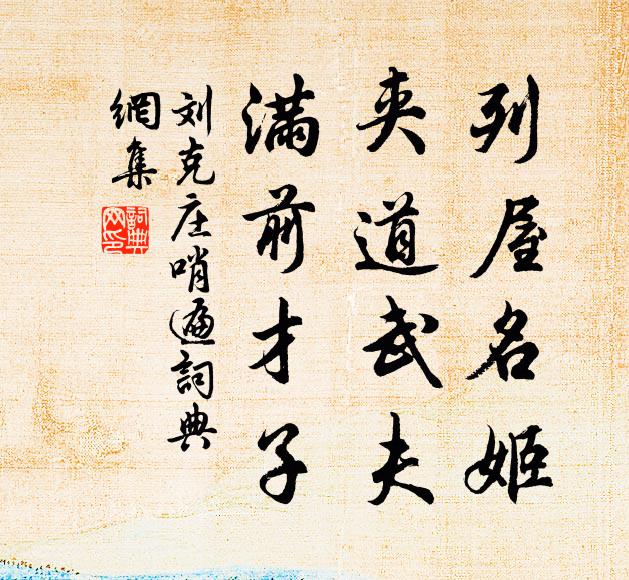 列屋名姬
夾道武夫
滿前才子
刘克庄哨遍詞典
網集
詞典網印